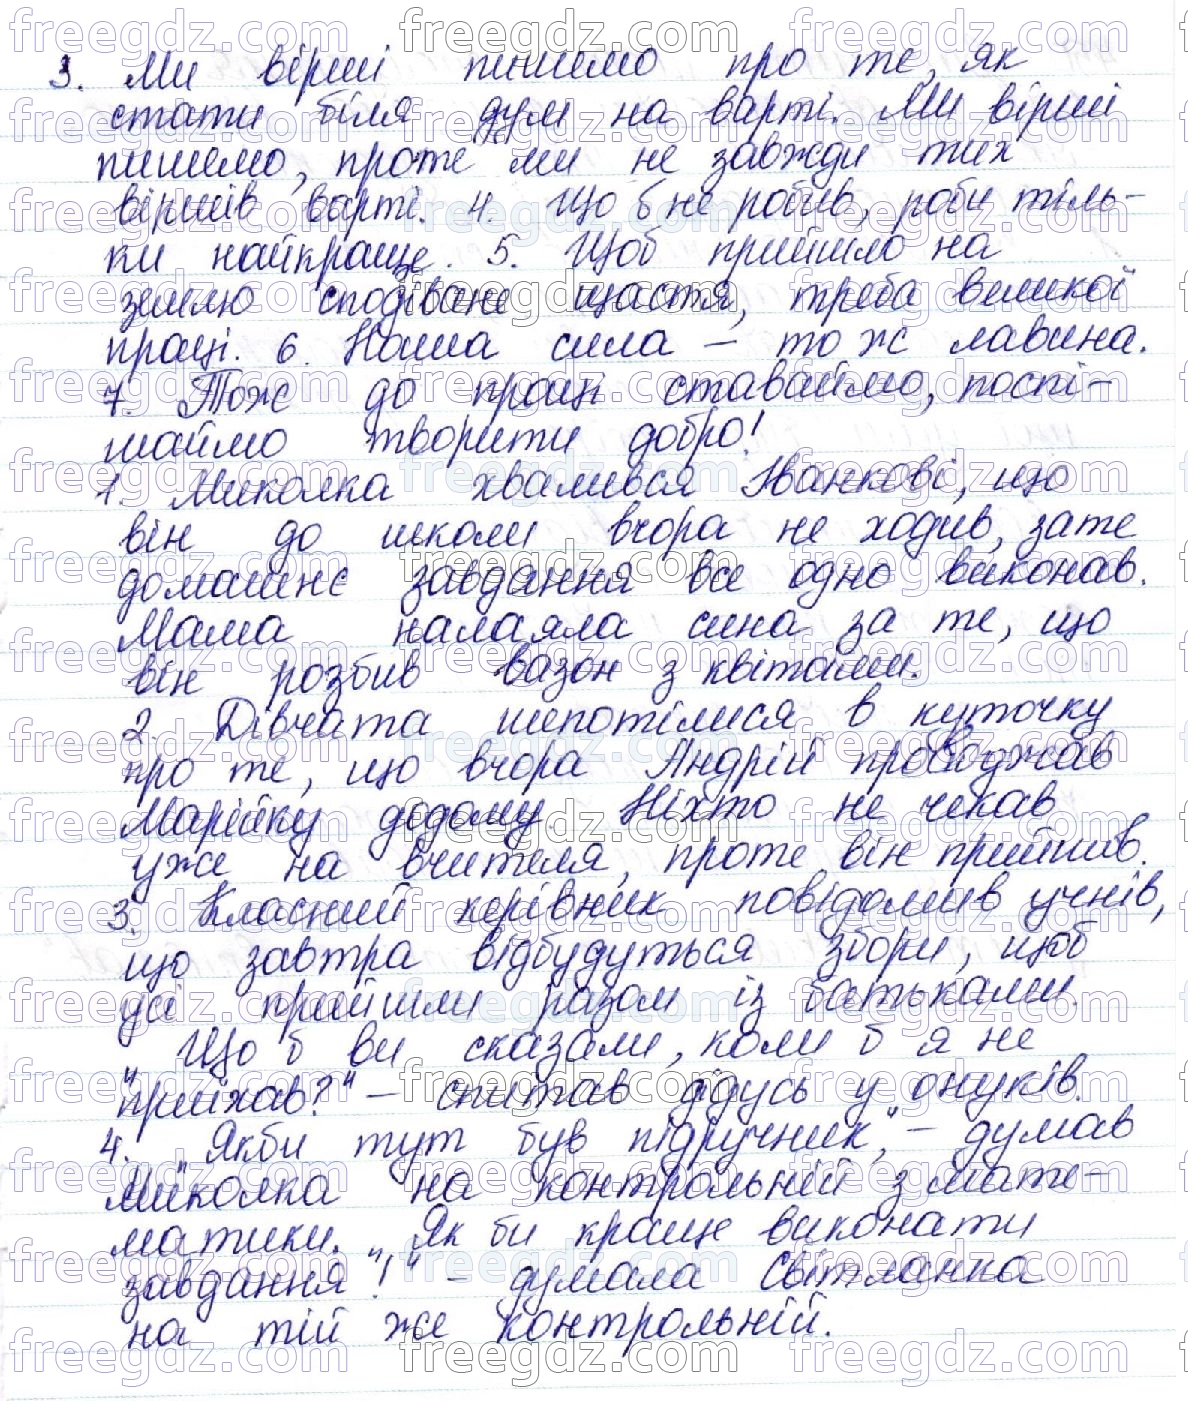 3. Ми вірші пишемо про те, як
стати біля дум на варті. Ми вірші
пишемо, проте ми не завжди тих
віршів варті. 4. Що б не робив, роби тіль-
ки найкраще. 5. Щоб прийшло на
землю сподіване щастя, треба великої
праці. 6. Наша сила – то ж лавина.
7. Тож до праці ставаймо, поспі-
шаймо творити добро!
1. Миколка хвалився Іванкові, що
він до школи вчора не ходив, зате
домашнє завдання все одно виконав.
Мама налаяла сина за те, що
він розбив вазон з квітами.
2. Дівчата шепотілися в куточку
про те, що вчора Андрій проводжав
Марійку додому. Ніхто не чекав
уже на вчителя, проте він прийшов.
3. Класний керівник повідомив учнів,
що завтра відбудуться збори, щоб
усі прийшли разом із батьками.
„Що б ви сказали, коли б я не
приїхав?" – спитав дідусь у онуків.
4. „Якби тут був підручник", – думав
Миколка на контрольній з мате-
матики. „Як би краще виконати
завдання!" – думала Світланка
на тій же контрольній.
freegdz.com